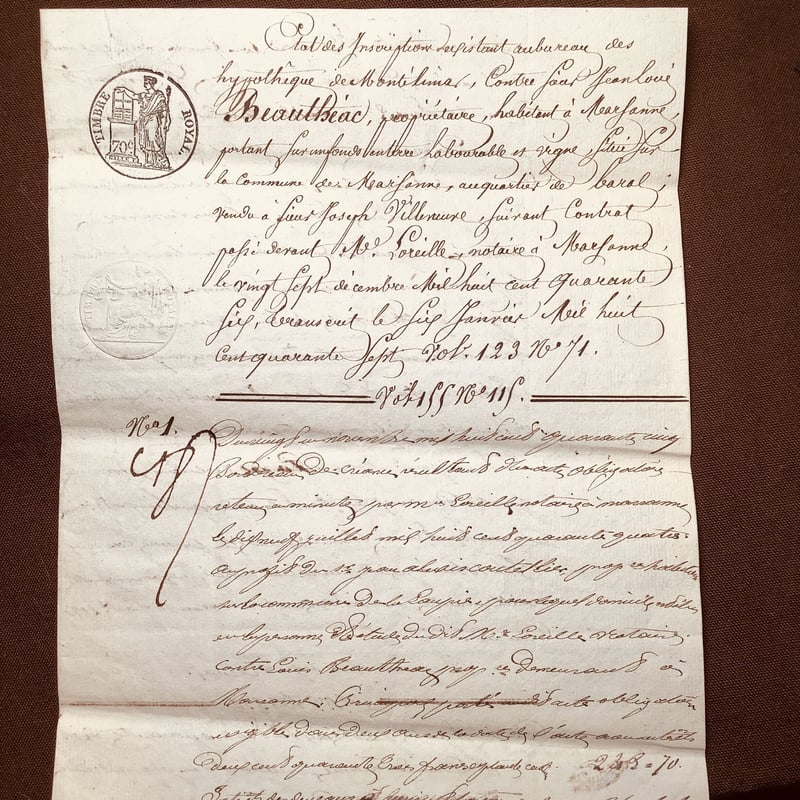 TIMBRE ROYAL
70c
Etat des Inscriptions existant au bureau des
hypothèque de Montélimar, Contre Sieur Jean Louis
Beauthéac, propriétaire, habitant à Marsanne,
portant sur un fonds en terre Labourable et vigne, Situé Sur
la Commune de Marsanne, au quartier de baral,
vendu à Sieur Joseph Villeneuve, Suivant Contrat
passé devant Me. Loreille, notaire à Marsanne
le vingt Sept décembre Mil huit cent quarante
Six, transcrit le Six Janvier Mil huit
cent quarante Sept Vol. 123 No 71.
Vol 155 No 115.
No 1.
Du vingt un novembre mil huit cent quarante cinq
Bordereau de créance résultant d'un acte obligation
retenu en minute par me Loreille notaire à marsanne
le dix neuf juillet mil huit cent quarante quatre
au profit du Sr prop re
Sur la commune de la
en la personne & l'étude du dit Me Loreille notaire
contre Louis Beautheac prop re demeurant à
Marsanne, acte obligation
exigible dans Deux ans de la date de l'acte
Deux cent quarante trois francs 243 = 70.